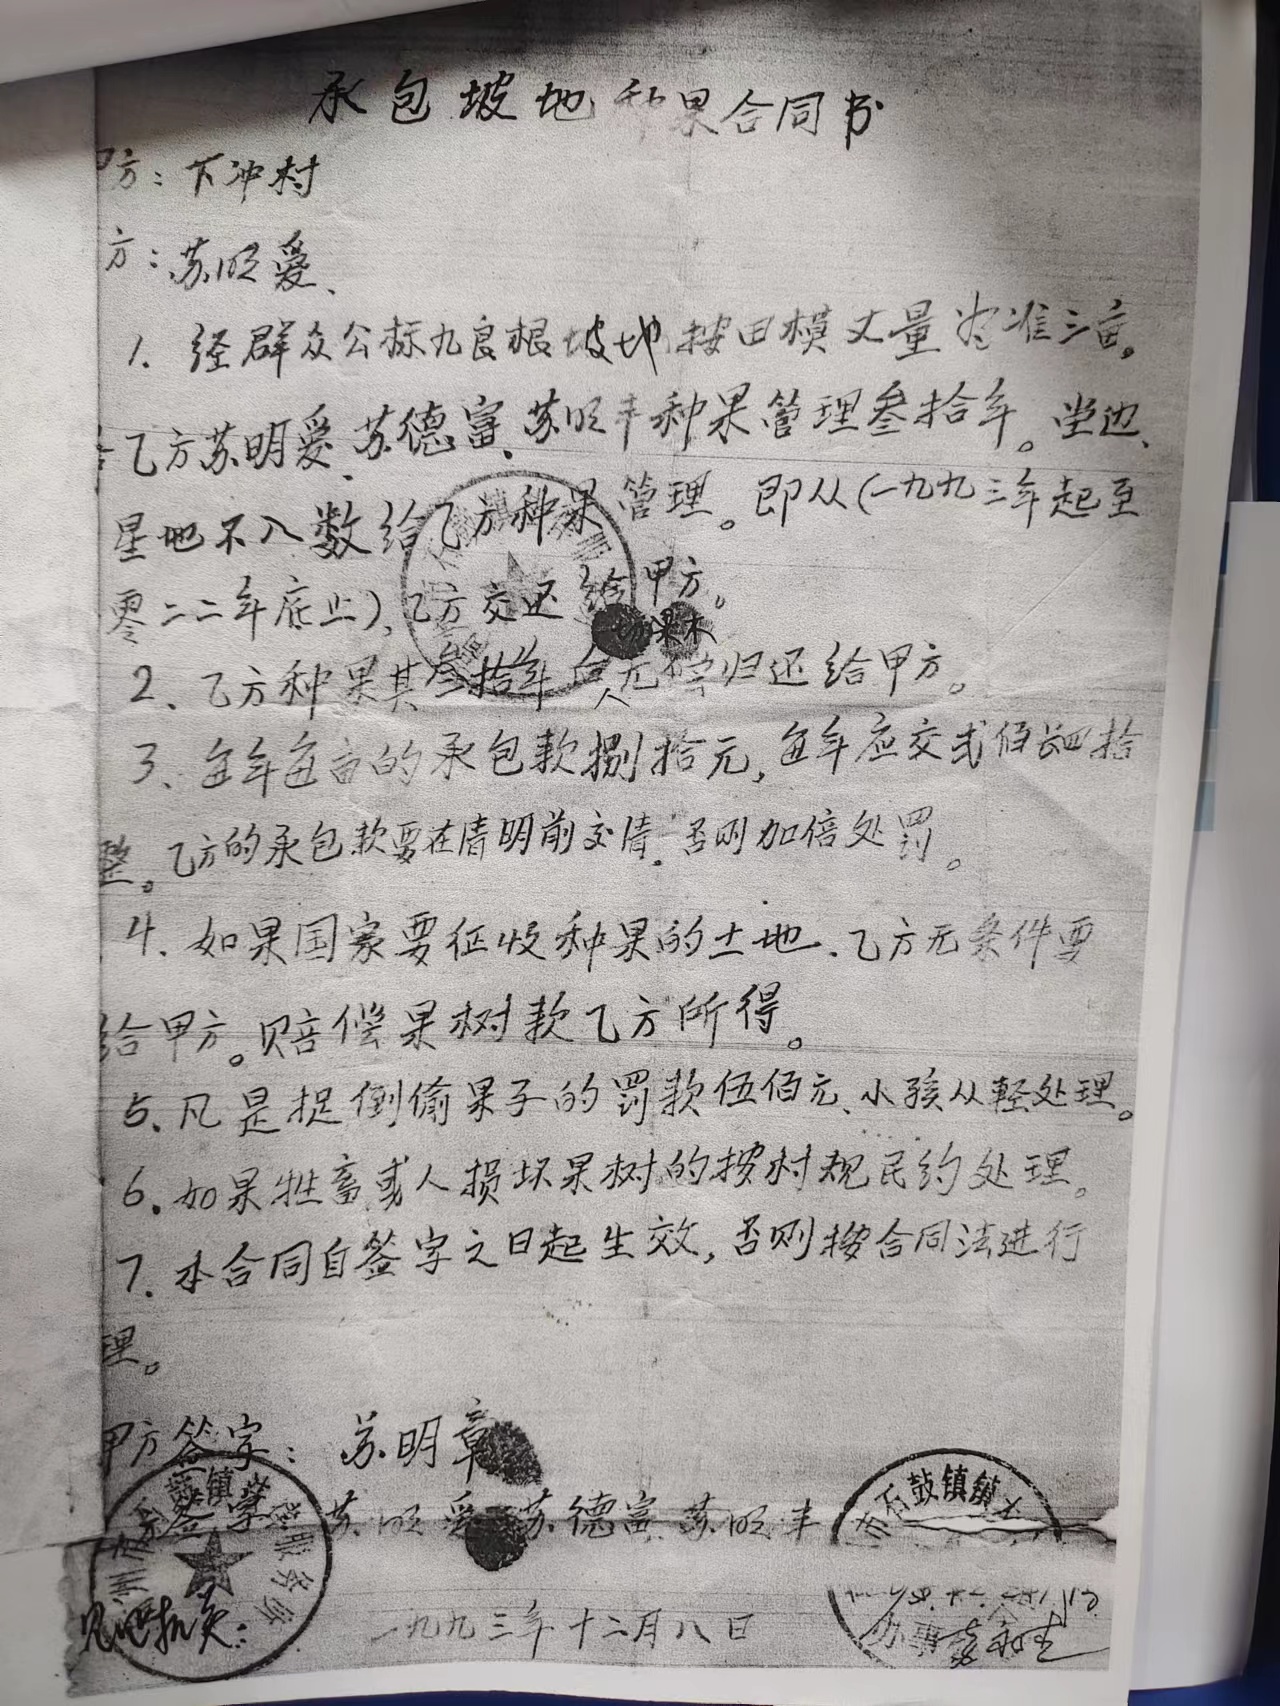 承包坡地种果合同书
方：下冲村
方：苏明爱、
1、经群众公标九良根坡地按田模丈量为准三亩。
乙方苏明爱、苏德富、苏明丰种果管理叁拾年。坐边、
星地不入数给乙方种果管理。即从(一九九三年起至
零二二年底止)，乙方交还给甲方。
2、乙方种果其叁拾年 无偿归还给甲方。
果木
3、每年每亩的承包款捌拾元，每年应交弍佰四拾
整。乙方的承包款要在清明前交清.否则加倍处罚。
4、如果国家要征收种果的土地、乙方无条件要
给甲方。赔偿果树款乙方所得。
5、凡是捉倒偷果子的罚款伍佰元、小孩从轻处理。
6.如果牲畜或人损坏果树的按村规民约处理。
7、本合同自签字之日起生效，否则按合同法进行
理。
甲方签字：苏明章
签 苏明爱 苏德富 苏明丰
石鼓镇镇
服务所
一九九三年十二月八日
办事